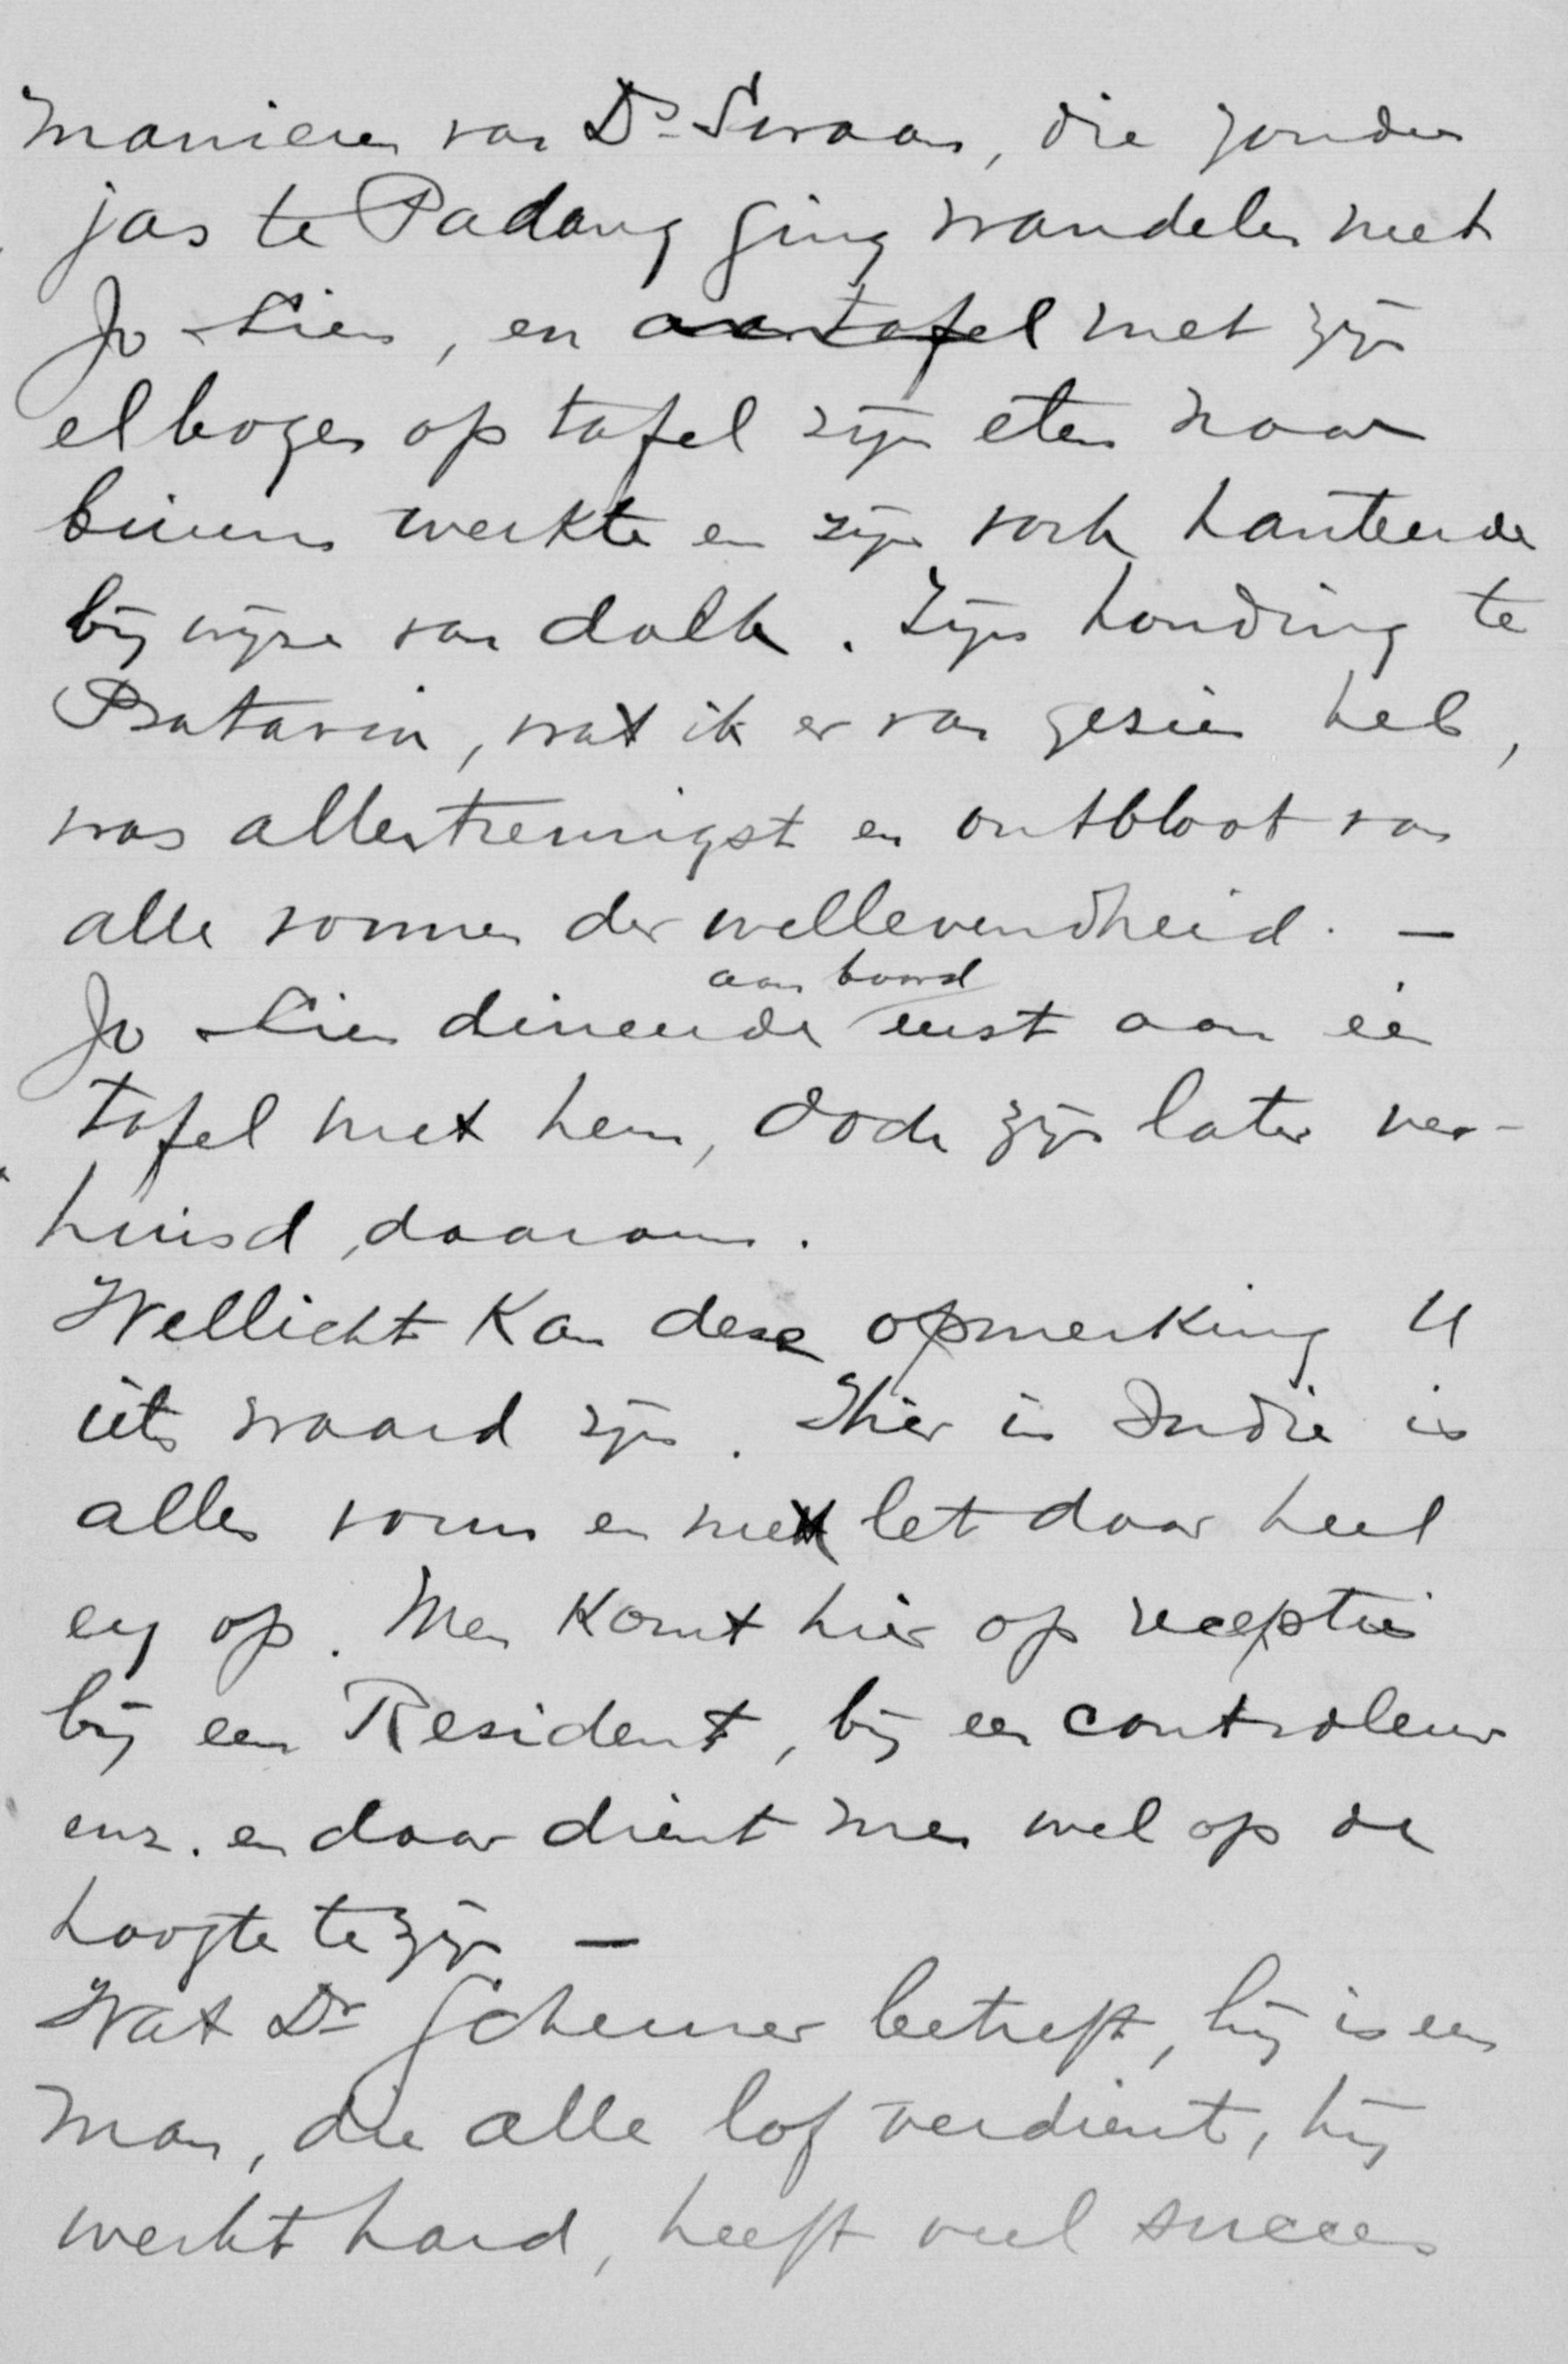 manieren van Ds. Swaan, die zonder
jas te Padang ging wandelen met
Jo Lien, en aan tafel met zijn
elbogen op tafel zijn eten naar
binnen werkte en zijn vork hanteerde
bij wijze van dolk. Zijn houding te
Batavia, wat ik er van gezien heb,
was allertreurigst en ontbloot van
alle vormen der wellevendheid. —
Jo Lien dineerde aan boord eerst aan één
tafel met hem, doch zijn later ver-
huisd, daarom.
Wellicht kan deze opmerking U
iets waard zijn. Hier in Indië is
alles vorm en men let daar heel
erg op. Men komt hier op receptie
bij een Resident, bij een controleur
enz. en daar dient men wel op de
hoogte te zijn —
Wat Dr Scheurer betreft, hij is een
man, die alle lof verdient, hij
werkt hard, heeft veel succes